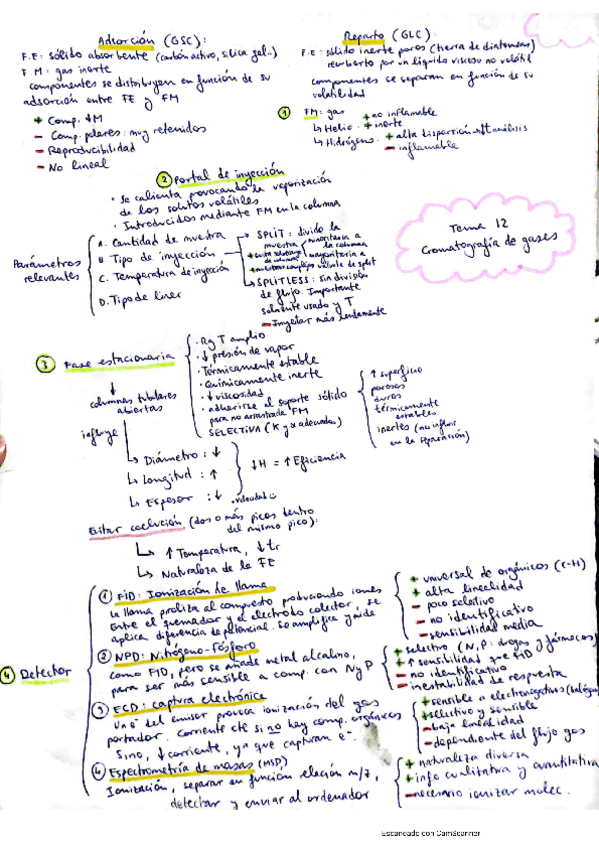 Adsorción (GSC):
F.E: sólido absorbente (carbón activo, silica gel..)
F.M: gas inerte
componentes se distribuyen en función de su
adsorción entre FE y FM
+ Comp. ↓M
- Comp. polares: muy retenidos
- Reproducibilidad
- No lineal
Reparto (GLC):
F.E: sólido inerte poros (tierra de diatomeas)
recubierto por un líquido viscoso no volátil
componentes se separan en función de su
volatilidad
① FM: gas
↳ Helio + no inflamable
+ inerte
↳ Hidrógeno: + alta disparción → ↑t análisis
- inflamable
② Portal de inyección
• Se calienta provocando la vaporización
de los solutos volátiles
• Introducidos mediante FM en la columna
Tema 12
Cromatografía de gases
Parámetros
relevantes
A. Cantidad de muestra
B. Tipo de inyección
C. Temperatura de inyección
D. Tipo de liner
→ SPLIT: divido la
muestra
minoritaria a
la columna
mayoritaria a
válvula de split
↳ SPLITLESS: sin división
de flujo. Importante
solvente usado y T
- Inyectar más lentamente
③ Fase estacionaria
· Rg T amplio
· ↓ presión de vapor
· Térmicamente estable
· Químicamente inerte
· ↓ viscosidad
• adherirse al soporte sólido
para no arrastrada FM
SELECTIVA (K y α adecuados)
↑ superficie
porosos
duros
térmicamente
estables
inertes (no influir
en la separación)
↓
columnas tubulares
abiertas
influye
↳ Diámetro: ↓
↳ Longitud: ↑
↳ Espesor: ↓
↓H = ↑Eficiencia
Evitar coelución (dos o más picos dentro
del mismo pico):
↳ ↑ Temperatura, ↓tr
↳ Naturaleza de la FE
④ Detector
① FID: Ionización de llama
la llama piroliza al compuesto produciendo iones
Entre el quemador y el electrodo colector, se
aplica diferencia de potencial. Se amplifica y mide
+ universal de orgánicos (C-H)
+ alta linealidad
- poco selectivo
- no identificativo
- sensibilidad media
② NPD: Nitrógeno-Fósforo
como FID, pero se añade metal alcalino,
para ser más sensible a comp. con N y P
+ selectivo (N, P: drogas y fármacos)
+ ↑ sensibilidad que FID
- no identificativo
- inestabilidad de respuesta
③ ECD: captura electrónica
Un e⁻ del emisor provoca ionización del gas
portador. Corriente cte si no hay comp. orgánicos
Sino, ↓ corriente, ya que capturan e⁻.
+ sensible a electronegativos
+ selectivo y sensible
- baja linealidad
- dependiente del flujo gas
④ Espectrometría de masas (MSD)
Ionización, separar en función relación m/z,
detectar y enviar al ordenador
+ naturaleza diversa
+ info cualitativa y cuantitativa
- necesario ionizar molec.
Escaneado con CamScanner